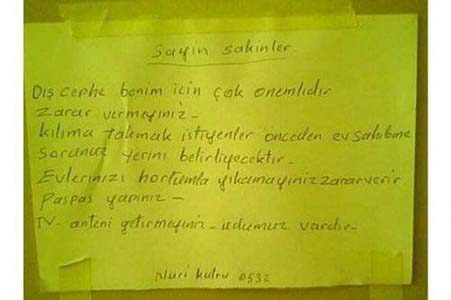 Sayın sakinler
Dış cephe benim için çok önemlidir
Zarar vermeyiniz -
Kılıma takmak istiyenler önceden ev sahibine
sorunuz yerini belirliyecektir -
Evlerinizi hortumla yıkamayınız zarar verir
Paspas yapınız -
TV- anteni getirmeyiniz - udumuz vardır -
Nuri kutru 0532